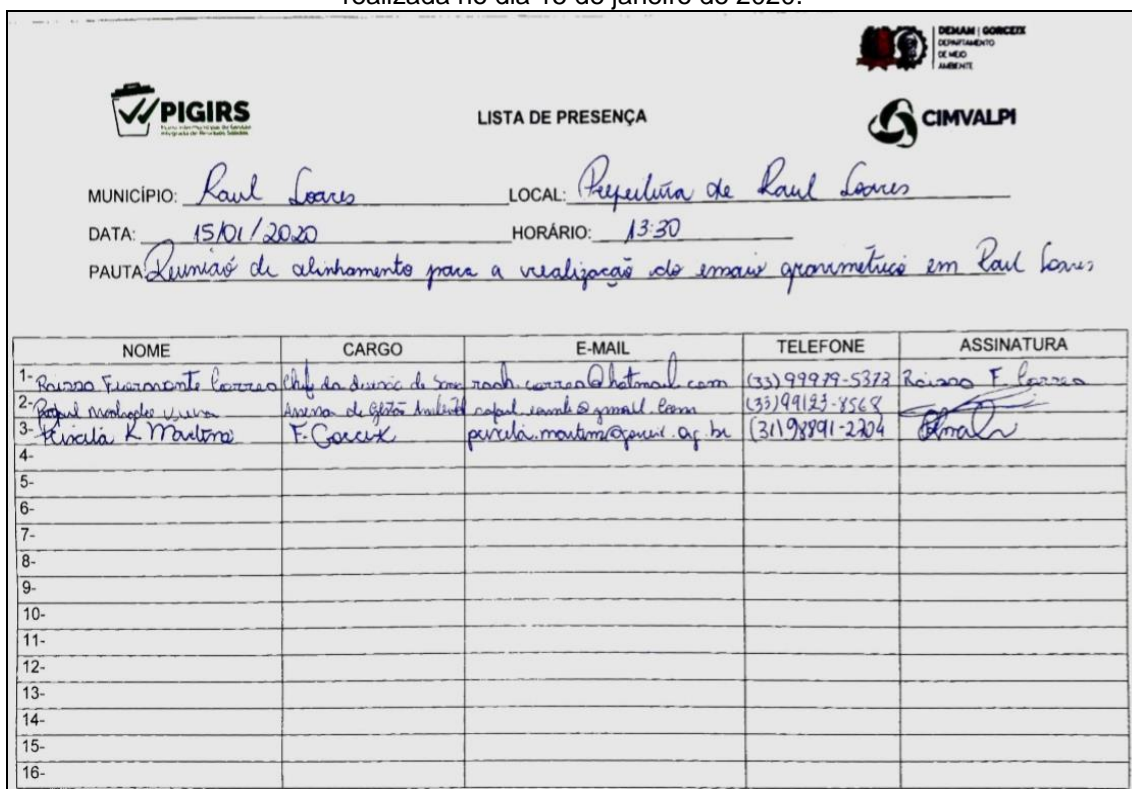 realizada no dia 15 de janeiro de 2020.
DEMAM | GORCEIX
DEPARTAMENTO
DE MEIO
AMBIENTE
PIGIRS
LISTA DE PRESENÇA
CIMVALPI
MUNICÍPIO: Raul Soares LOCAL: Prefeitura de Raul Soares
DATA: 15/01/2020 HORÁRIO: 13:30
PAUTA: Reunião de alinhamento para a realização do ensaio gravimétrico em Raul Soares
NOME CARGO E-MAIL TELEFONE ASSINATURA
1- Correa Chefe da de @hotmail.com (33) 99979-5373 F. Correa
2- Rafael Vieira de Gestão Ambiental @gmail.com (33) 99123-8568
3- Priscila K Martins F. Gorceix (31) 98891-2204
4-
5-
6-
7-
8-
9-
10-
11-
12-
13-
14-
15-
16-